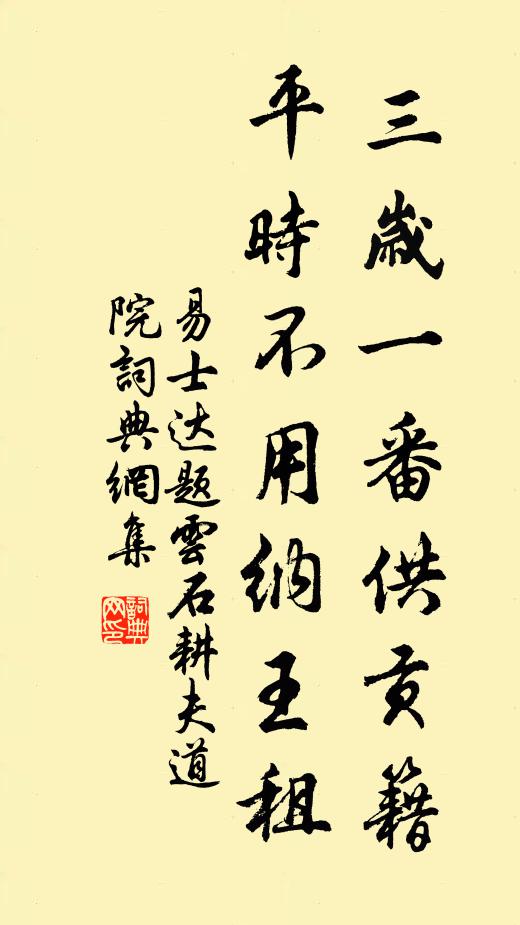 三歲一番供貢籍
平時不用納王租
易士达题雲石耕夫道
院詞典網集
詞典
网印